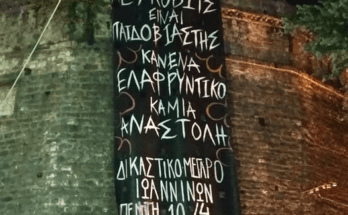 ΕΙΝΑΙ
ΠΑΙΔΟΒΙΑΣΤΗΣ
ΚΑΝΕΝΑ
ΕΛΑΦΡΥΝΤΙΚΟ
ΚΑΜΙΑ
ΑΝΑΣΤΟΛΗ
ΔΙΚΑΣΤΙΚΟ ΜΕΓΑΡΟ
ΙΩΑΝΝΙΝΩΝ
ΠΕΜΠΤΗ 10/4